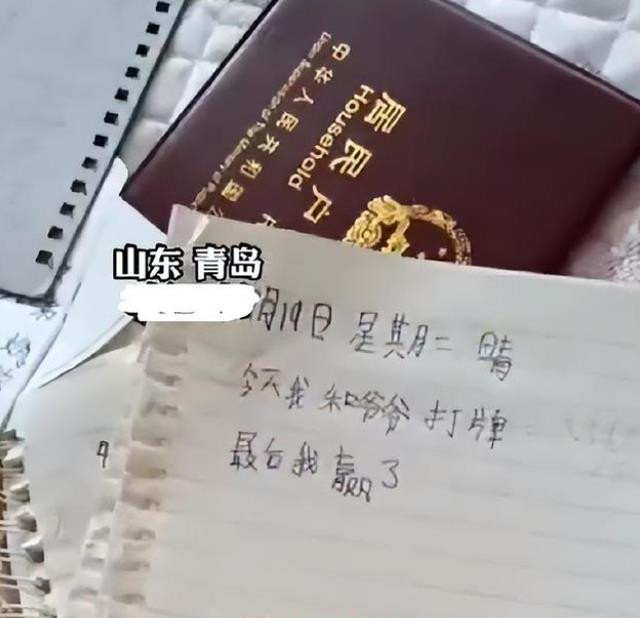 居民户
Household
中华人民共和国
山东 青岛
月19日 星期二 晴
今天我和爷爷打牌
最后我赢了
9